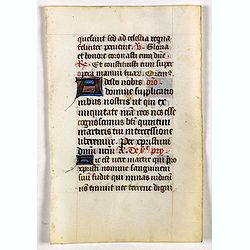 quesiuit sed ad celestia regna
feliciter peruenit. Gloria
et honore coronasti eum dñe
Et constituisti eum super
opera manuum tuarum
desto nobis
domine supplicatio
nibus nostris ut qui ex
iniquitate nos esse
cognoscimus bti quintini
martiris tui intercessione
liberemur. Per xpristum
dnm
ic est vere martir qui pro
xpristi nomine sanguinem
suu fudit qui minas iudicu
no timuit nec terrene digni